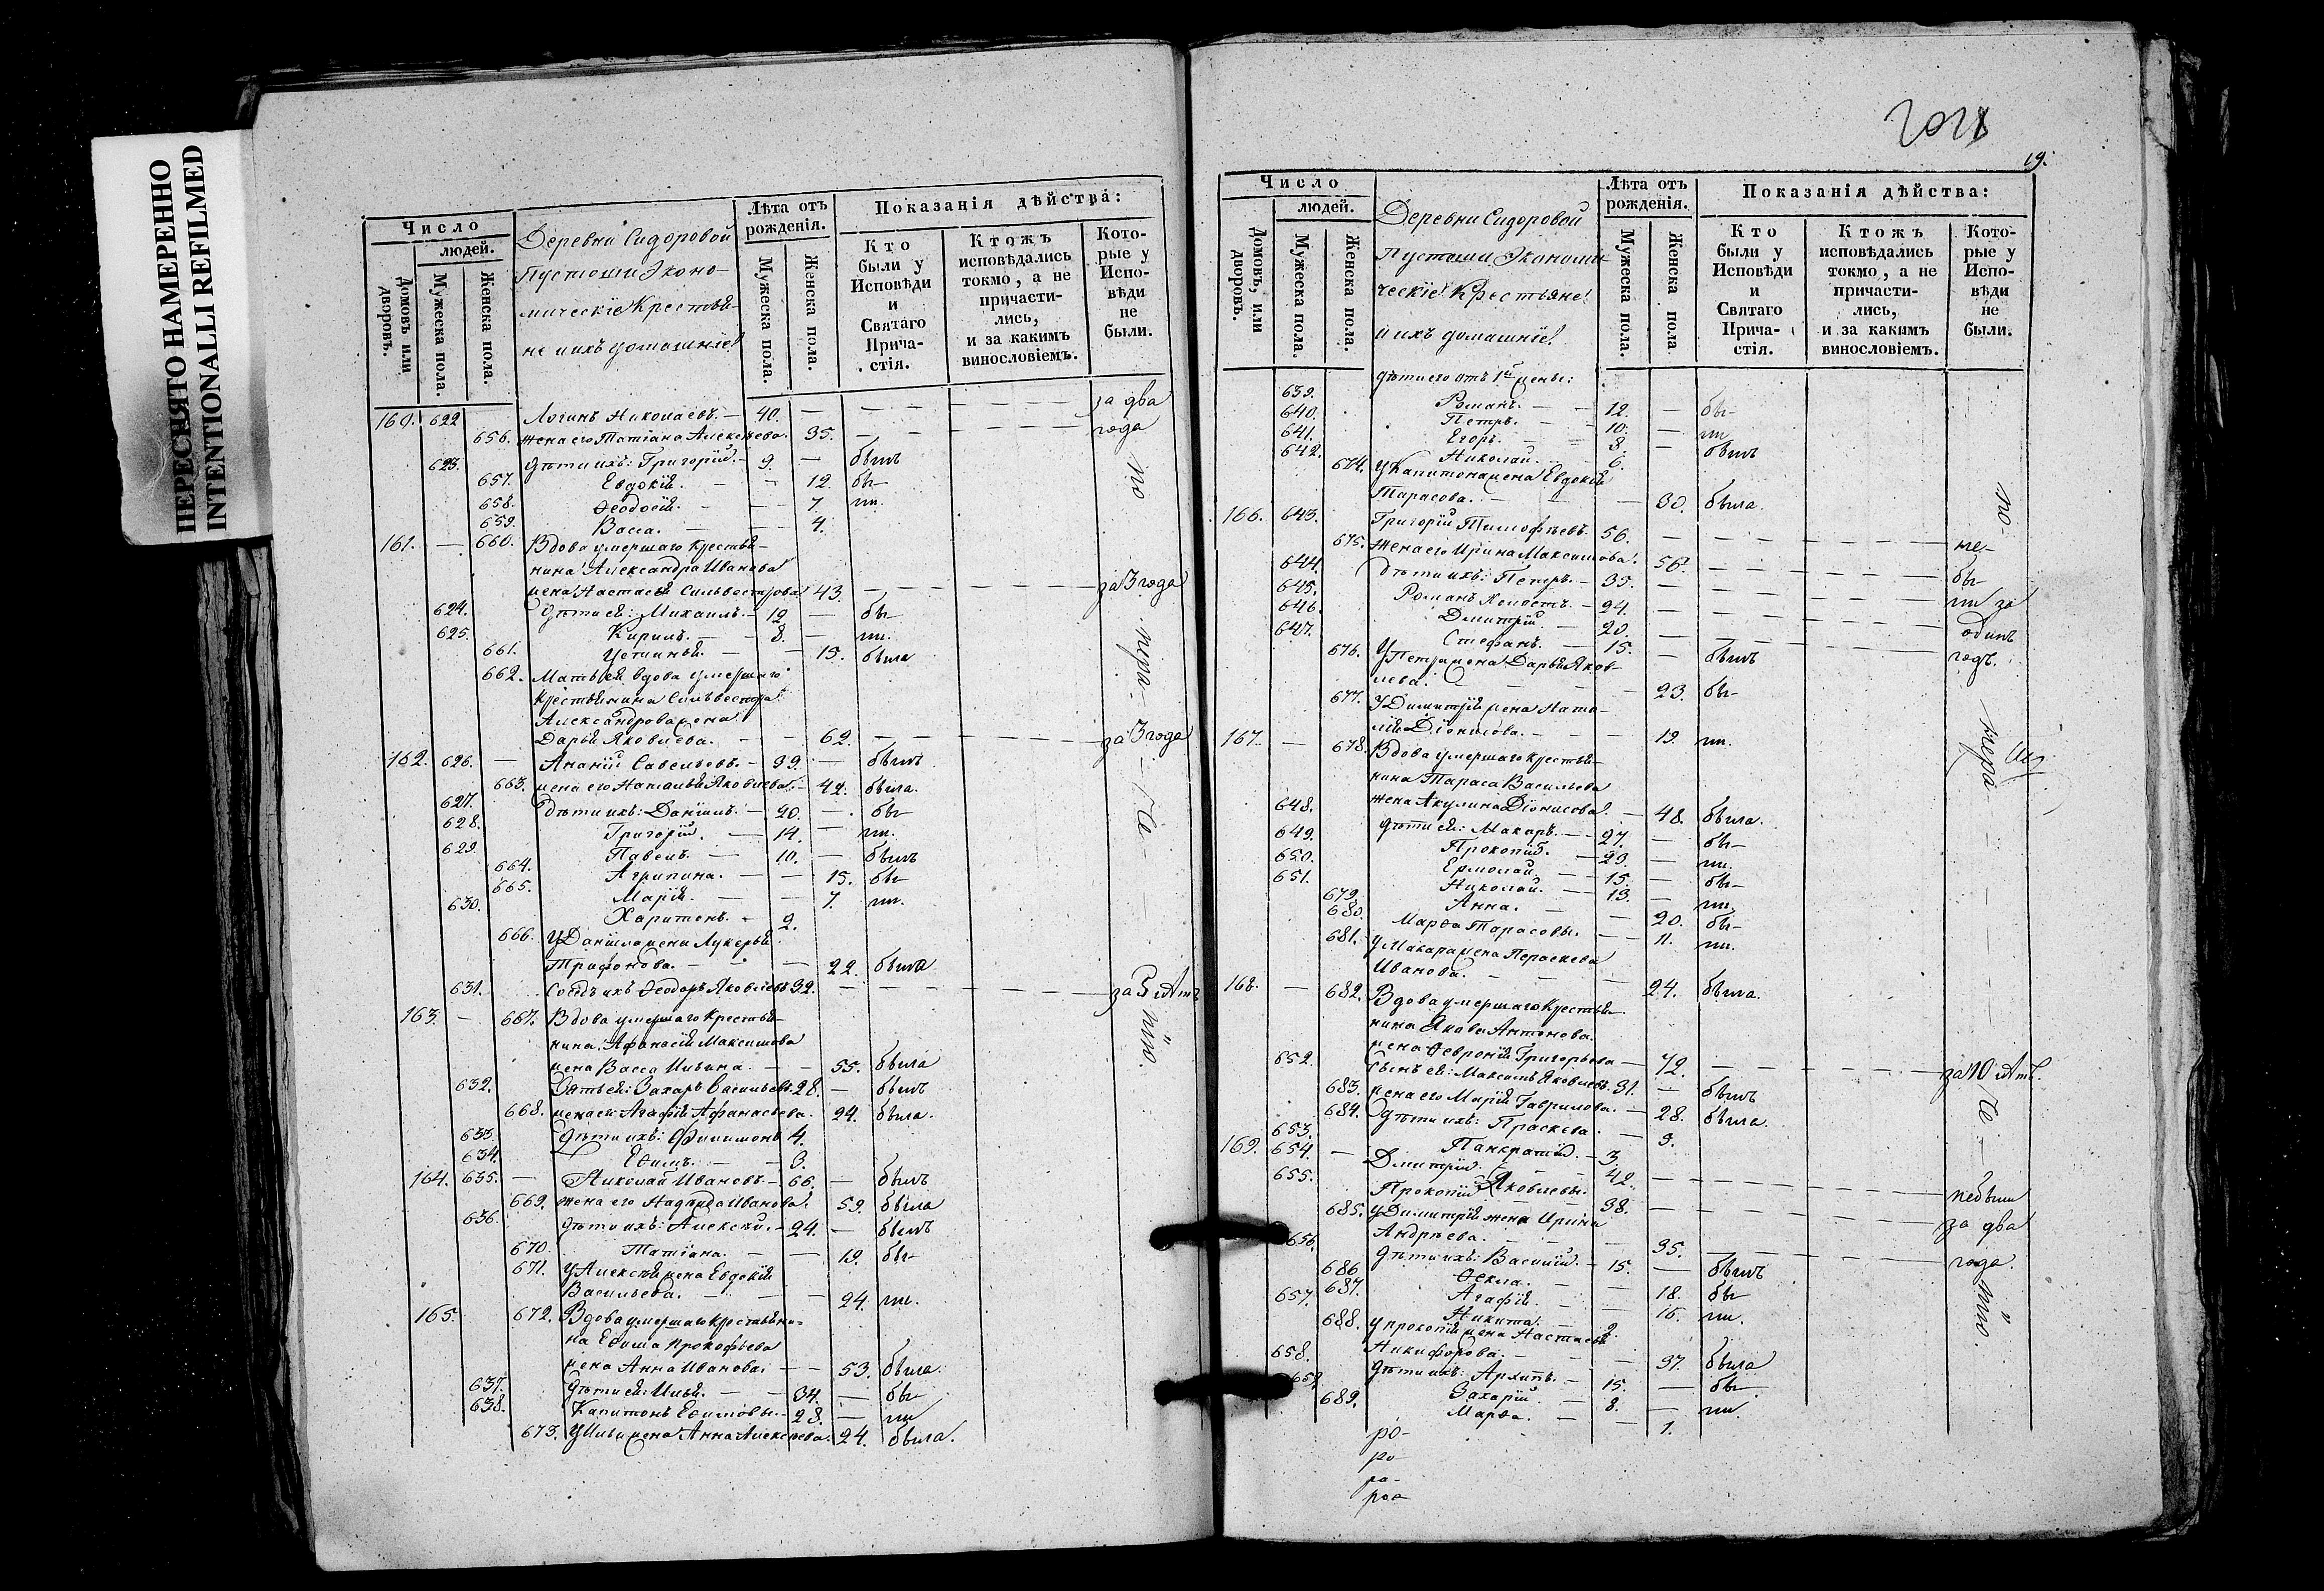 ПЕРЕСНЯТО НАМЕРЕННО
INTENTIONALLI REFILMED
Число
людей.
Домовъ или дворовъ.
Мужеска пола.
Женска пола.
Деревни Сидоровой
Пустоши Эконо-
мическіе Крестья-
не и ихъ домашніе
Лѣта отъ рожденія.
Мужеска пола.
Женска пола.
Показанія дѣйства:
Кто были у Исповѣди и Святаго Прича-стія.
Ктожъ исповѣдались токмо, а не причасти-лись, и за какимъ винословіемъ.
Кото-рые у Испо-вѣди не были.
160. 622 Логинъ Николаевъ. — 40. — — — за два
656. жена его Татіана Алексѣева. 35. — — года
623. дѣти ихъ: Григорій. — 9. — былъ
657. Евдокія. — — 12. бы-
658. Ѳеодосія. — — 7. ли.
659. Васса. — — 4.
161. — 660. Вдова умершаго крестья-
нина Александра Иванова
жена Настасья Сильвестрова 43. — — за 3 года
624. дѣти ей: Михаилъ. — 12 — бы-
625. Кирилъ. — 8. — ли.
661. Устинья. — — 15. была
662. Мать ей вдова умершаго
крестьянина Сильвестра
Александрова жена
Дарья Яковлева. — — 62. — — за 3 года
162. 626. — Ананій Савельевъ. — 39. — былъ
663. жена его Наталья Яковлева. — 42. была.
627. дѣти ихъ: Даніилъ. — 20. — бы-
628. Григорій. — 14. — ли.
629. Павелъ. — 10. — былъ
664. Агрипина. — — 15. бы-
665. Марія. — — 7. ли.
630. Харитонъ. — 2.
666. У Даніила жена Лукерья
Трифонова. — — 22. была
631. Ѳеодоръ Яковлевъ 32. — — за 5 лѣтъ
163. — 667. Вдова умершаго крестья-
нина Афанасія Максимова
жена Васса Ильина. — 55. была
632. Зять ей: Захаръ Васильевъ. 28. — былъ
668. жена его Агафія Афанасьева. 24. была.
633. дѣти ихъ: Филимонъ 4.
634. Ефимъ. — 3.
164. 635. — Николай Ивановъ. — 66. — былъ
669. жена его Надежда Иванова. 59. была
636. дѣти ихъ: Алексѣй. — 24. — былъ
670. Татіана. — — 19. бы-
671. У Алексѣя жена Евдокія
Васильева. — — 24. ли.
165. 672. Вдова умершаго крестьяни-
на Ефима Прокофьева
жена Анна Иванова. — — 53. была.
637. дѣти ей: Илья. — — 34. — бы-
638. Капитонъ Ефимовы. — 28. — ли
673. У Ильи жена Анна Алексѣева. 24. была.
по
нера-
че-
нію.
19.
Число
людей.
Домовъ, или дворовъ.
Мужеска пола.
Женска пола.
Деревни Сидоровой
Пустоши Экономи-
ческіе Крестьяне
и ихъ домашніе
Лѣта отъ рожденія.
Мужеска пола.
Женска пола
Показанія дѣйства:
Кто были у Исповѣди и Святаго Прича-стія.
Ктожъ исповѣдались токмо, а не причасти-лись, и за какимъ винословіемъ.
Кото-рые у Испо-вѣди не были.
дѣти его отъ 1й жены:
639. Романъ. — — 12. — бы-
640. Петръ. — — 10. — ли
641. Егоръ. — — 8. — былъ
642. Николай. — 6.
674. У Капитона жена Евдокія
Тарасова. — — 30. была.
166. 643. Григорій Тимофѣевъ. 56. — — не-
675. Жена его Ирина Максимова. 56. — — бы-
644. дѣти ихъ: Петръ. — 35. — — ли за
645. Романъ — 24. — — одинъ
646. Дмитрій. — 20. — — годъ.
647. Стефанъ. — 15. — былъ
676. У Петра жена Дарья Яков-
лева. — — 23. бы-
677. У Димитрія жена Ната-
лія Діонисова. — — 19. ли.
167. — 678. Вдова умершаго крестья-
нина Тараса Васильева
жена Акулина Діонисова. — 48. была.
648. дѣти ей: Макаръ. — 27. — бы-
649. Прокопій. — 23. — ли.
650. Ермолай. — 15. — бы-
651. Николай. — 13. — ли.
679. Анна. — — 20. бы-
680. Марѳа Тарасовы. — 11. ли.
681. У Макара жена Параскева
Иванова. — — 24. была.
168. — 682. Вдова умершаго крестья-
нина Якова Антонова
жена Ѳевронія Григорьева — 72. — — за 10 лѣтъ.
652. Сынъ ей: Максимъ Яковлевъ. 31. — былъ
683. жена его Марія Гаврилова. — 28. была.
684. дѣти ихъ: Праскева. — 9.
653. Панкратій. — 3
169. 654. — Дмитрій. — 42. — — небыли
655. Прокопій Яковлевы. 38. — — за два
685. У Димитрія жена Ирина
Андрѣева. — — 35. — — года.
656. дѣти ихъ: Василій. — 15. — былъ
686 Ѳекла. — — 18. бы-
687. Агафія. — — 16. ли.
657. Никита. — 2.
688. У Прокопія жена Настасья
Никифорова. — — 37. была
658. дѣти ихъ: Архипъ. — 15. — бы-
659. Захарій. — 8. — ли.
689. Марѳа. — — 1.
по
нера
че-
нію.
ро-
ро-
ра-
рое